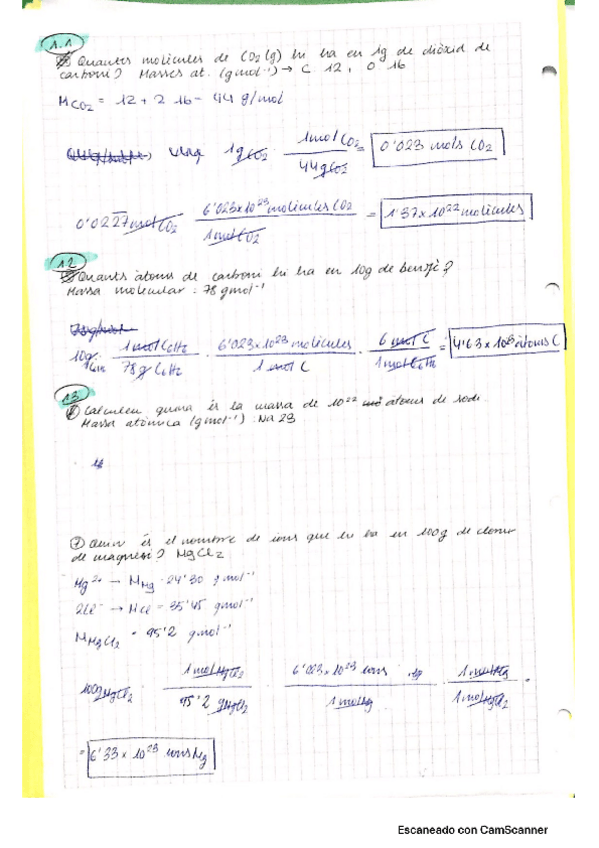 1.1
Quantes molècules de CO2(g) hi ha en 1g de diòxid de
carboni? Masses at. (gmol⁻¹) → C 12, O 16
M CO2 = 12 + 2 · 16 = 44 g/mol
1g CO2 · 1mol CO2 / 44g CO2 = 0'023 mols CO2
0'0227 mol CO2 · 6'023x10²³ molècules CO2 / 1mol CO2 = 1'37x10²² molècules
1.2
Quants àtoms de carboni hi ha en 10g de benzè?
Massa molecular: 78 gmol⁻¹
10g · 1mol / 78g · 6'023x10²³ molècules / 1 mol C · 6 mol C / 1mol = 4'63 x 10²³ àtoms C
1.3
Calculeu quina és la massa de 10²² àtoms de sodi.
Massa atòmica (gmol⁻¹): Na 23
⑦ Quin és el nombre de ions que hi ha en 100g de clorur
de magnesi? MgCl2
Mg²⁺ → M Mg = 24'30 gmol⁻¹
2Cl⁻ → M Cl = 35'45 gmol⁻¹
M MgCl2 = 95'2 gmol⁻¹
100g MgCl2 · 1mol MgCl2 / 95'2 g MgCl2 · 6'023 x 10²³ ions Mg / 1molMg · 1molMg / 1molMgCl2 =
= 6'33 x 10²³ ions Mg
Escaneado con CamScanner